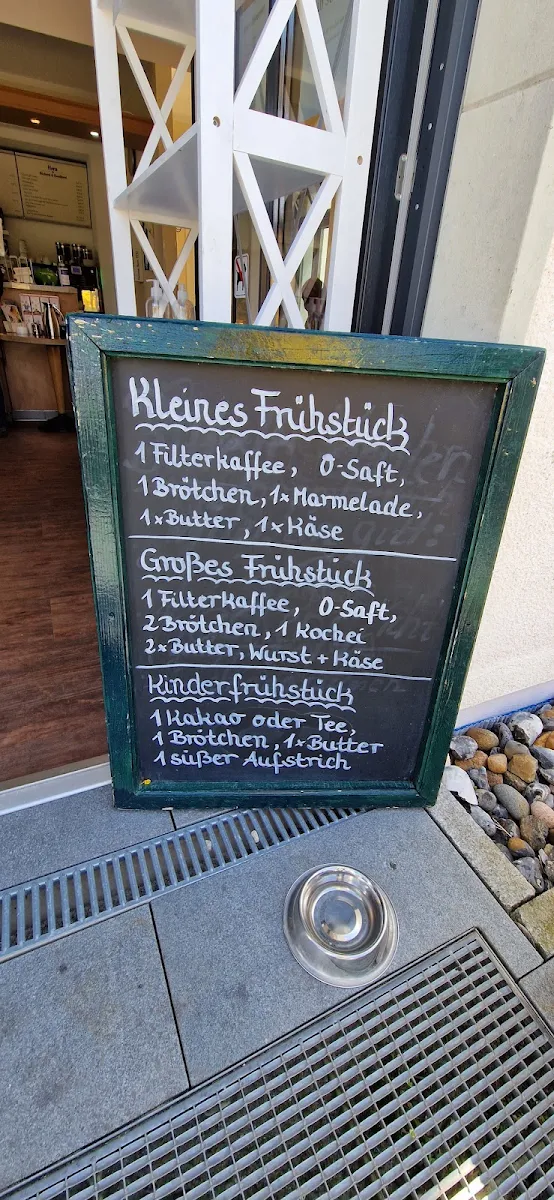 Kleines Frühstück
1 Filterkaffee, O-Saft,
1 Brötchen, 1x Marmelade,
1x Butter, 1x Käse
Großes Frühstück
1 Filterkaffee, O-Saft,
2 Brötchen, 1 Kochei
2x Butter, Wurst + Käse
Kinderfrühstück
1 Kakao oder Tee,
1 Brötchen, 1x Butter
1 süßer Aufstrich